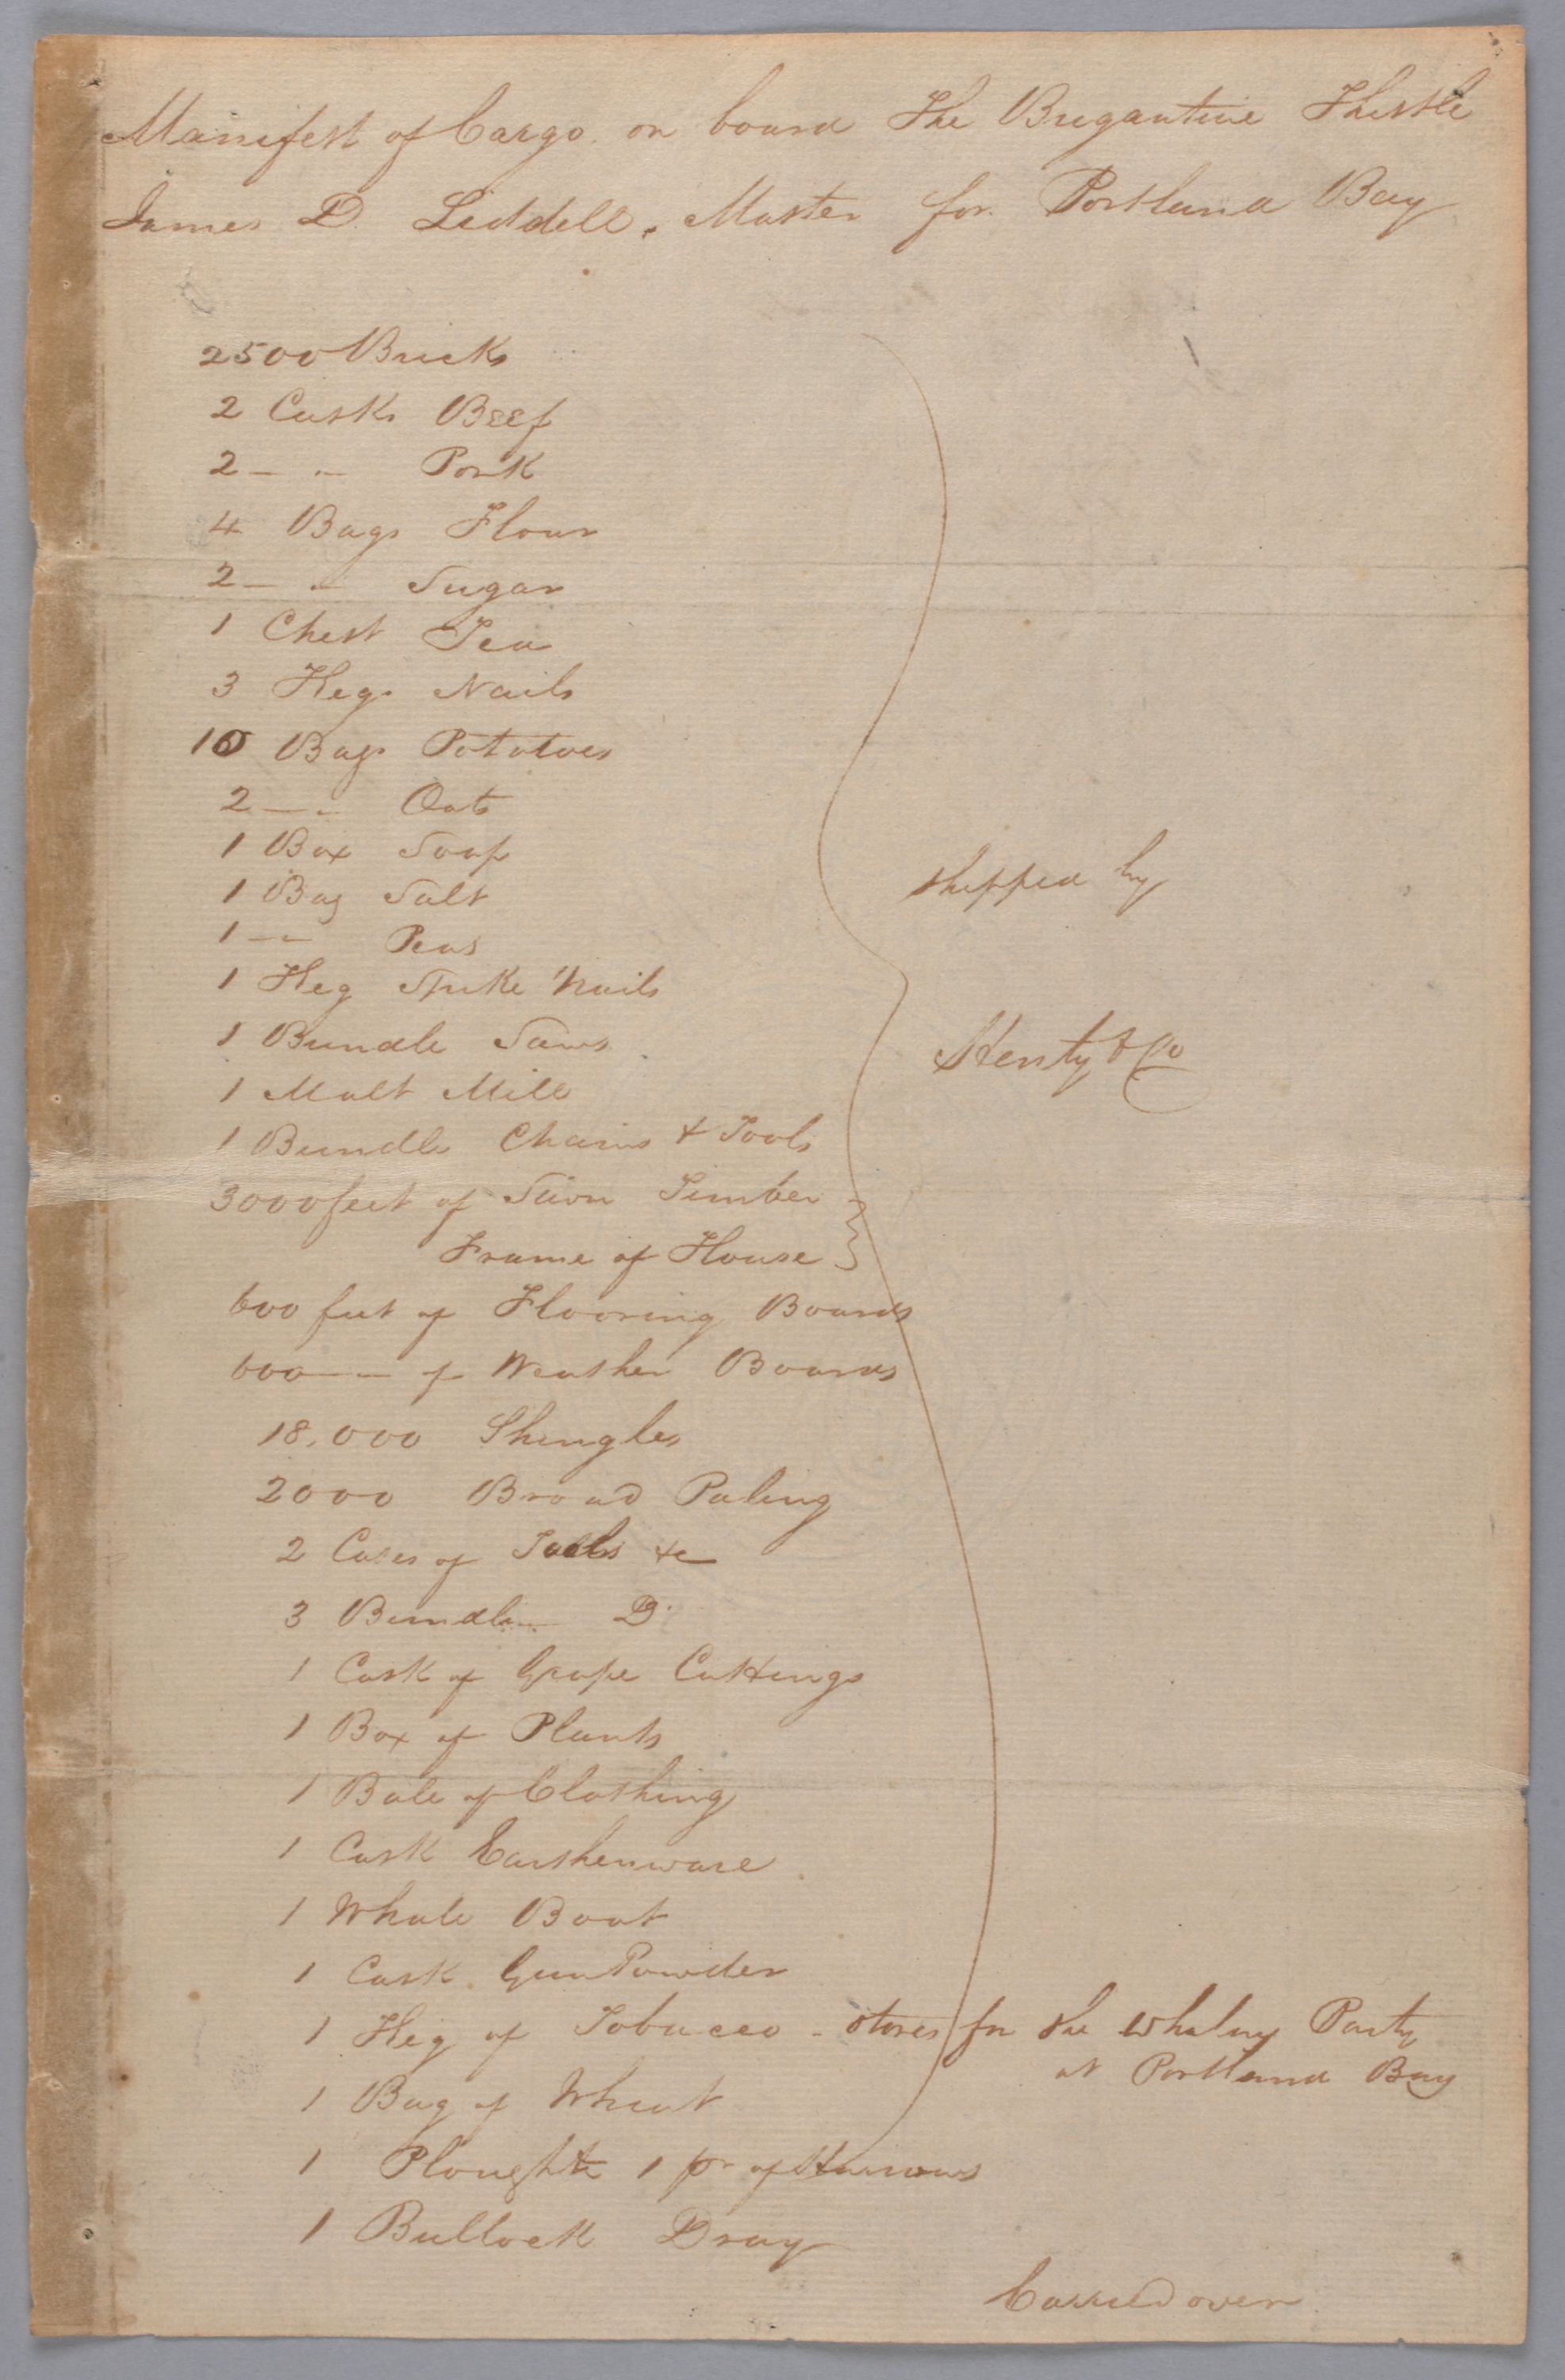 Manifest of Cargo on board The Brigantine Thistle
James D. Liddell. Master for Portland Bay
2500 Bricks
2 Casks Beef
2 — " — Pork
4 Bags Flour
2 — " — Sugar
1 Chest Tea
3 Kegs Nails
10 Bags Potatoes
2 — " Oats
1 Box Soap
1 Bag Salt
1 — " Peas
1 Keg Spike Nails
1 Bundle Saws
1 Malt Mill
1 Bundle Chains & Tools
3000 feet of Sawn Timber
Frame of House
600 feet of Flooring Boards
600 — " — of Weather Boards
18,000 Shingles
2000 Broad Paling
2 Cases of Tools &c
3 Bundles Do
1 Cask of Grape Cuttings
1 Box of Plants
1 Bale of Clothing
1 Cask Earthenware
1 Whale Boat
1 Cask GunPowder
1 Keg of Tobacco - stores for the Whaling Party
at Portland Bay
1 Bag of Wheat
1 Plough & 1 pr of Harrows
1 Bullock Dray
shipped by
Henty & Co
Carried over